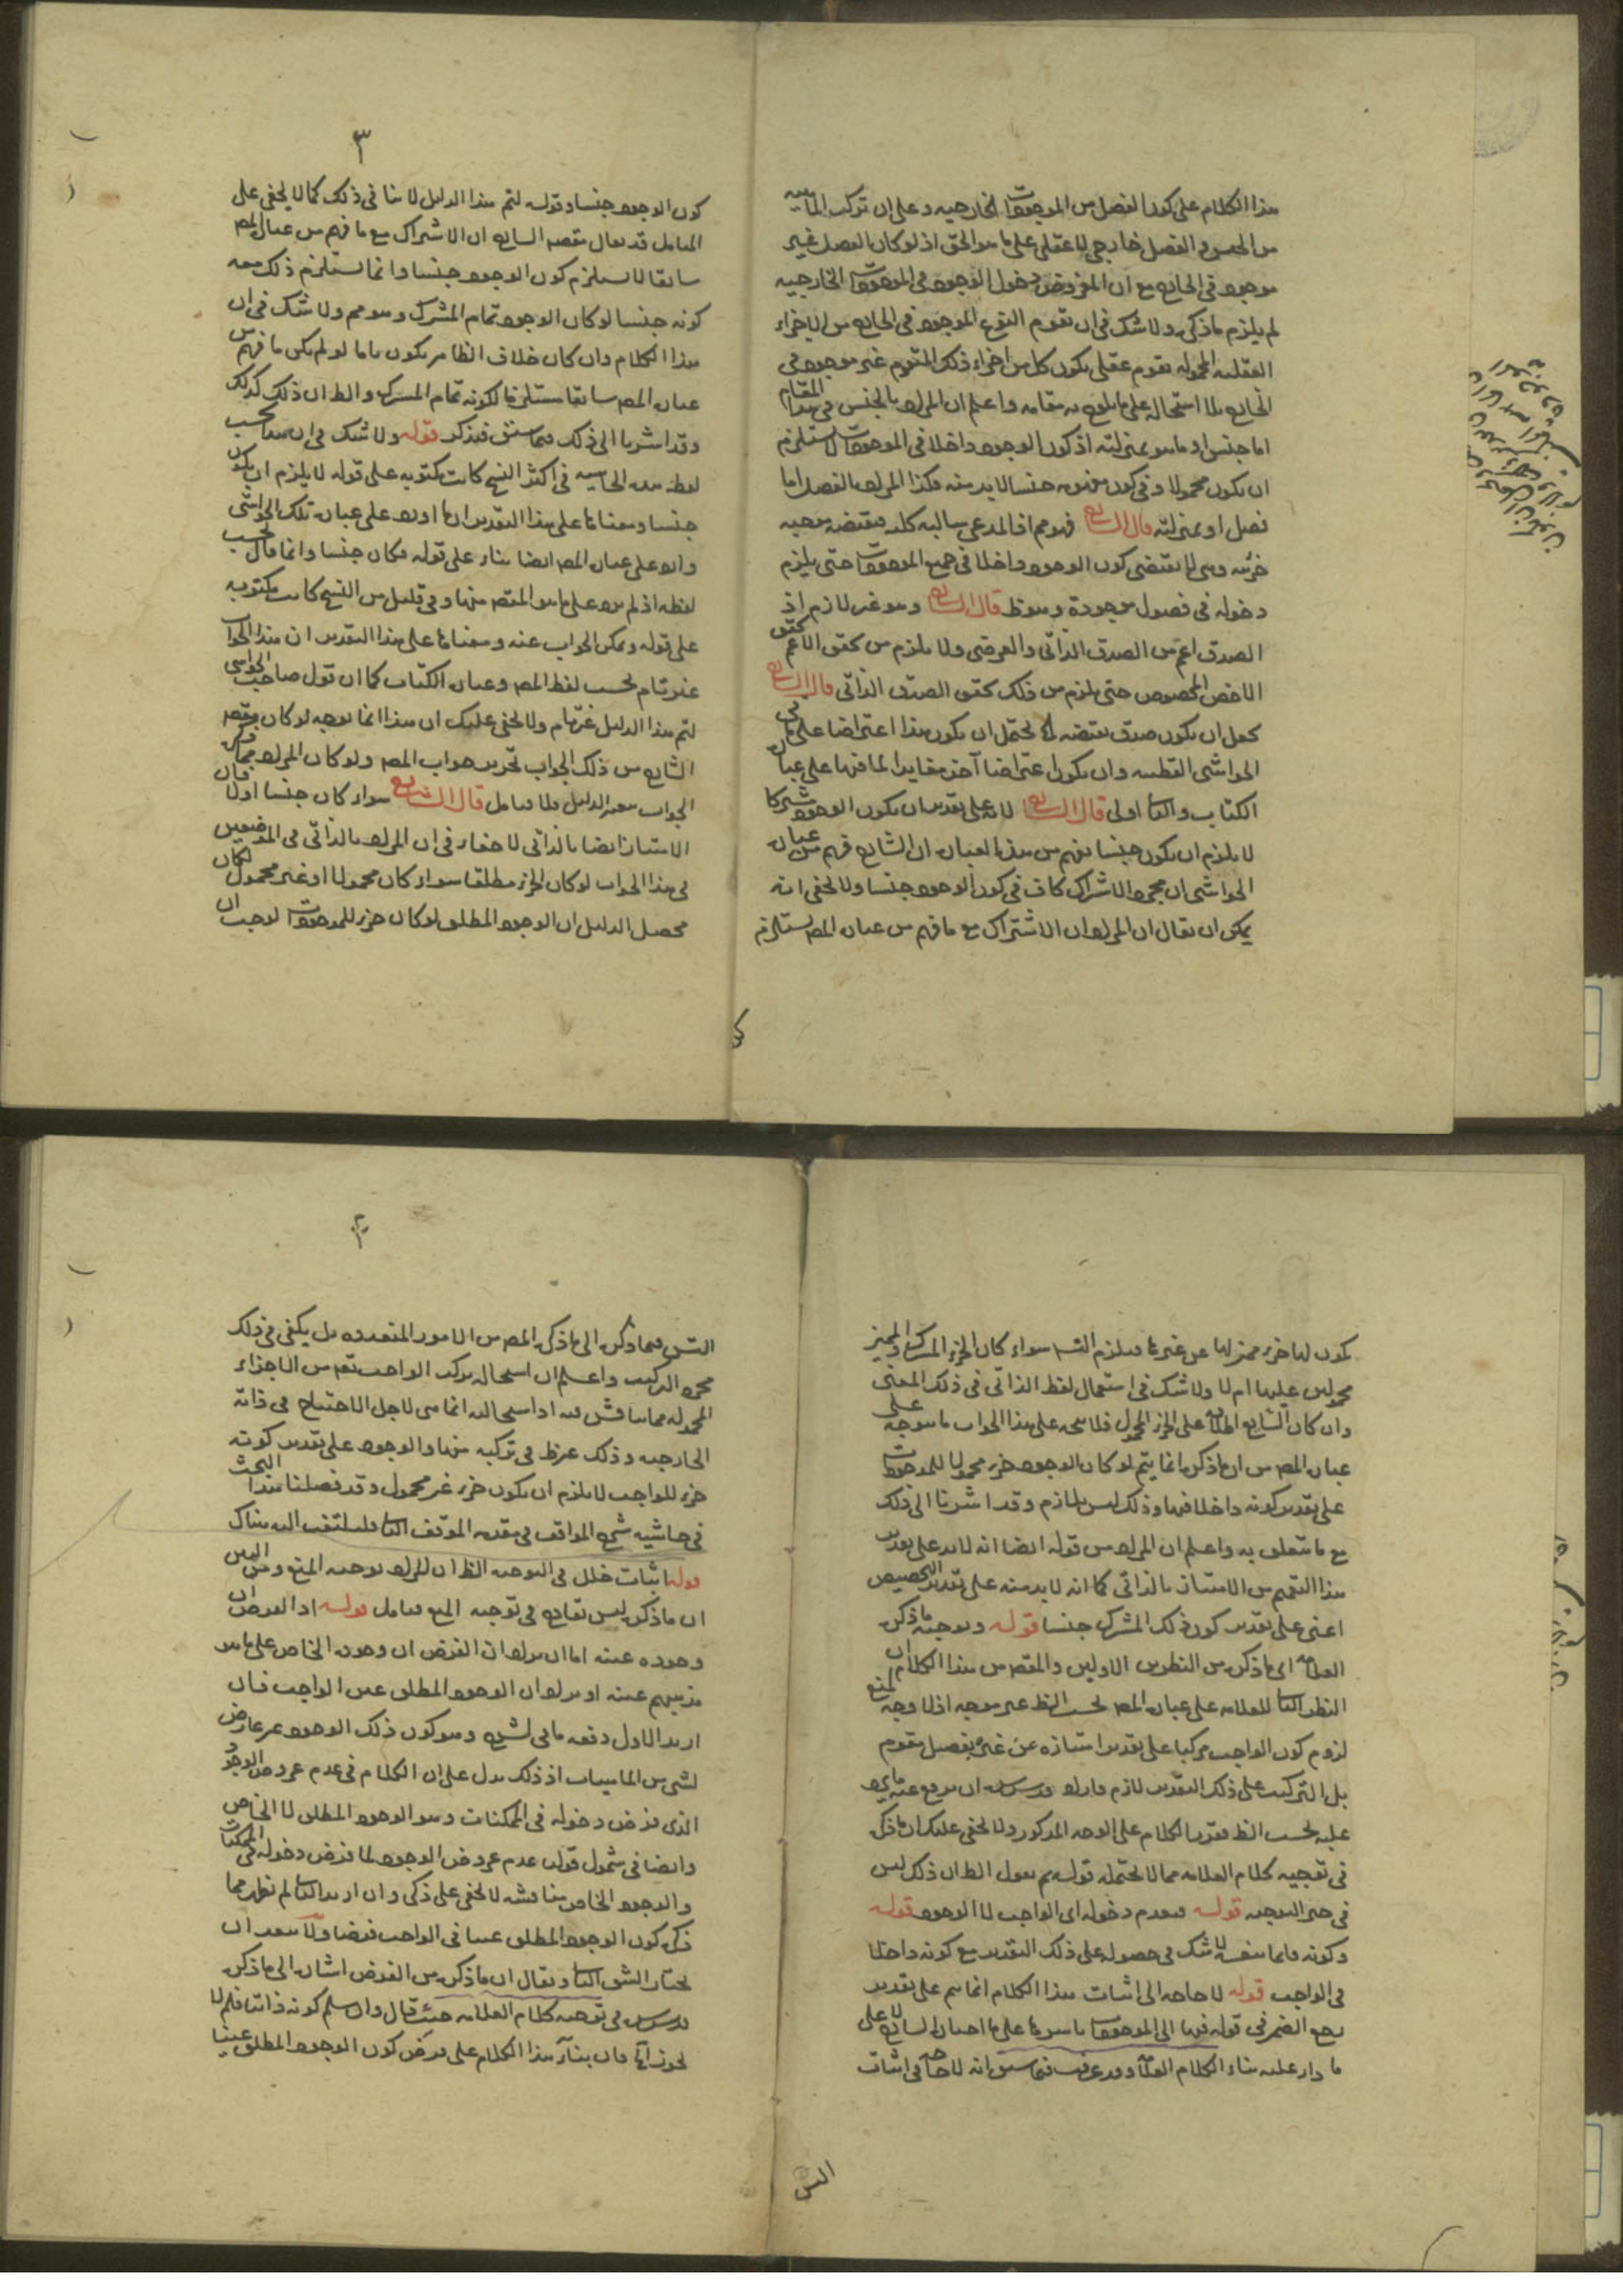 هذا الكلام على كون الفصل من الموجودات الخارجيه وعلى ان تركب الماهيه
من الجنس والفصل خارجى لا عقلى على ما هو الحق اذ لو كان الفصل غير
موجود فى الخارج مع ان المفروض دخول الوجود فى الموجودات الخارجيه
لم يلزم ما ذكر ولا شك فى ان تقوم النوع الموجود فى الخارج من الاجزاء
العقليه المحموله تقوم عقلى يكون كل من اجزاء ذلك المتقوم غير موجود فى
الخارج ولا استحاله على ما يلوح به مقامه واعلم ان المراد بالجنس فى هذا المقام
اما جنس او ما هو بمنزلته اذ كون الوجود داخلا فى الموجودات لا يستلزم
ان يكون محمولا وفى كون جنسا لا بد منه وكذا المراد بالفصل اما
فصل او بمنزلته قال الشارح فهو مم اذ المدعى سالبه كليه فنقيضه موجبه
جزئيه وهى لا تقتضى كون الوجود داخلا فى جميع الموجودات حتى يلزم
دخوله فى فصول موجودة وهو ظ قال الشارح وهو غير لازم اذ
الصدق اعم من الصدق الذاتى والعرضى ولا يلزم من تحقق الاعم تحقق
الاخص المخصوص حتى يلزم من ذلك تحقق الصدق الذاتى قال الشارح
يحتمل ان يكون هذا اعتراضا على ما فى
الحواشى القطبيه وان يكون اعتراضا آخر مغايرا لما فيها على عباره
الكتاب والثا اولى قال الشارح لانه على تقدير ان يكون الوجود مشتركا
لا يلزم ان يكون جنسا يفهم من هذه العباره ان الشارح فهم من عباره
الحواشى ان مجرد الاشتراك كاف فى كون الوجود جنسا ولا يخفى انه
يمكن ان يقال ان المراد ان الاشتراك مع ما فهم من عباره المص يستلزم
٣
كون الوجود جنسا وقوله لتم هذا الدليل لا ينافى ذلك كما لا يخفى على
المتامل قد يقال مقصود الشارح ان الاشتراك مع ما فهم من عباره المص
سابقا لا يستلزم كون الوجود جنسا وانما يستلزم ذلك معه
كونه جنسا لو كان الوجود تمام المشترك وهو مم ولا شك فى ان
هذا الكلام وان كان خلاف الظاهر يكون تاما لو لم يكن ما فهم من
عباره المص سابقا مستلزما لكونه تمام المشترك والظ ان ذلك كذلك
وقد اشرنا الى ذلك فيما سبق فتذكر قوله ولا شك فى ان هذا بحسب
لفظه هذه الحاشيه فى اكثر النسخ كانت مكتوبه على قوله لا يلزم ان يكون
جنسا ومعناها على هذا التقدير ان ما اورد على عباره تلك الحواشى
وارد على عباره المص ايضا بناء على قوله فكان جنسا وانما قال بحسب
لفظه اذ لم يرد على ما هو المقصود منها وفى قليل من النسخ كانت مكتوبه
على قوله ويمكن الجواب عنه ومعناها على هذا التقدير ان هذا الجواب
غير تام بحسب لفظ المص وعباره الكتاب كما ان قول صاحب الحواشى
لتم هذا الدليل غير تام ولا يخفى عليك ان هذا انما يوجه لو كان مقصود
الشارح من ذلك الجواب تحرير جواب المص ولو كان المراد مما ذكره
الجواب عن الدليل فلا فتامل قال الشارح سواء كان جنسا اولا فان
الامتياز ايضا بالذاتى لا خفاء فى ان المراد بالذاتى فى الموضعين
فى هذا الجواب لو كان الجزء مطلقا سواء كان محمولا او غير محمول لكان
محصل الدليل ان الوجود المطلق لو كان جزء للموجودات لوجب ان
يكون لها جزء مميز لها عن غيرها فيلزم التس سواء كان الجزء المشترك والمميز
محمولين عليها ام لا ولا شك فى استعمال لفظ الذاتى فى ذلك المعنى
وان كان الشايع اطلاقه على الجزء المحمول فلا يتجه على هذا الجواب ما يتوجه على
عباره المص من ان ما ذكره انما يتم لو كان الوجود جزء محمولا للموجودات
على تقدير كونه داخلا فيها وذلك ليس بلازم وقد اشرنا الى ذلك
مع ما يتعلق به واعلم ان المراد من قوله ايضا انه لا بد على تقدير
هذا التعميم من الامتياز بالذاتى كما انه لا بد منه على تقدير التخصيص
اعنى على تقدير كون ذلك المشترك جنسا قوله وتوجيه ما ذكره
العلامه اى ما ذكره من النظرين الاولين والمقصود من هذا الكلام ان
النظر الثا للعلامه على عباره المص بحسب الظ غير موجه اذ لا وجه لمنع
لزوم كون الواجب مركبا على تقدير امتيازه عن غيره بفصل مقوم
بل التركيب على ذلك التقدير لازم فاراد قدس سره ان يدفع عنه ما يرد
عليه بحسب الظ فقرر الكلام على الوجه المذكور ولا يخفى عليك ان ما ذكره
فى توجيه كلام العلامه مما لا يحتمله قوله ثم نقول الظ ان ذلك ليس
فى حيز التوجيه قوله فيعدم دخوله اى الواجب لا الوجود قوله
وكونه قايما بنفسه لا شك فى حصوله على ذلك التقدير مع كونه داخلا
فى الواجب قوله لا حاجه الى اثبات هذا الكلام انما يتم على تقدير
رجع الضمير فى قوله فيها الى الموجودات باسرها على ما اختاره الشارح لا على
ما دار عليه بناء الكلام العلامه وقد عرفت فيما سبق انه لا حاجه فى اثبات
التس
٤
التس فيما ذكره الى ما ذكره المص من الامور المتعدده بل يكفى فى ذلك
مجرد التركيب واعلم ان استحاله تركب الواجب تقدس من الاجزاء
المحموله مما يناقش فيه اذ استحالته انما هى لاجل الاحتياج فى ذاته
الخارجيه وذلك غير ظ فى تركيبه منها والوجود على تقدير كونه
جزء للواجب لا يلزم ان يكون جزء غير محمول وقد فصلنا هذا البحث
فى حاشيه شرح المواقف فى مقدمه الموقف الثا فليلتفت اليه هناك
قوله اثبات خلل فى التوجيه الظ ان المراد توجيه المنع ومن البين
ان ما ذكره ليس بقادح فى توجيه المنع فتامل قوله اذ الفرض ان
وجوده عينه اما ان يراد ان الفرض ان وجوده الخاص على ما هو
مذهبهم عينه او يراد ان الوجود المطلق عين الواجب فان
اريد الاول دفعه ما فى الشرح وهو كون ذلك الوجود غير عارض
لشى من الماهيات اذ ذلك يدل على ان الكلام فى عدم عروض الوجود
الذى فرض دخوله فى الممكنات وهو الوجود المطلق لا الخاص
وايضا فى شمول قولنا عدم عروض الوجود لما فرض دخوله فى الممكنات
والوجود الخاص مناقشه لا تخفى على ذكى وان اريد الثا لم يظهر مما
ذكر كون الوجود المطلق عينا فى الواجب فرضا ولا يبعد ان
يختار الشق الثا ويقال ان ما ذكره من الفرض اشاره الى ما ذكره
قدس سره فى توجيه كلام العلامه حيث قال وان سلم كونه ذاتيا فلم لا
يجوز اه فان بناء هذا الكلام على فرض كون الوجود المطلق عينا